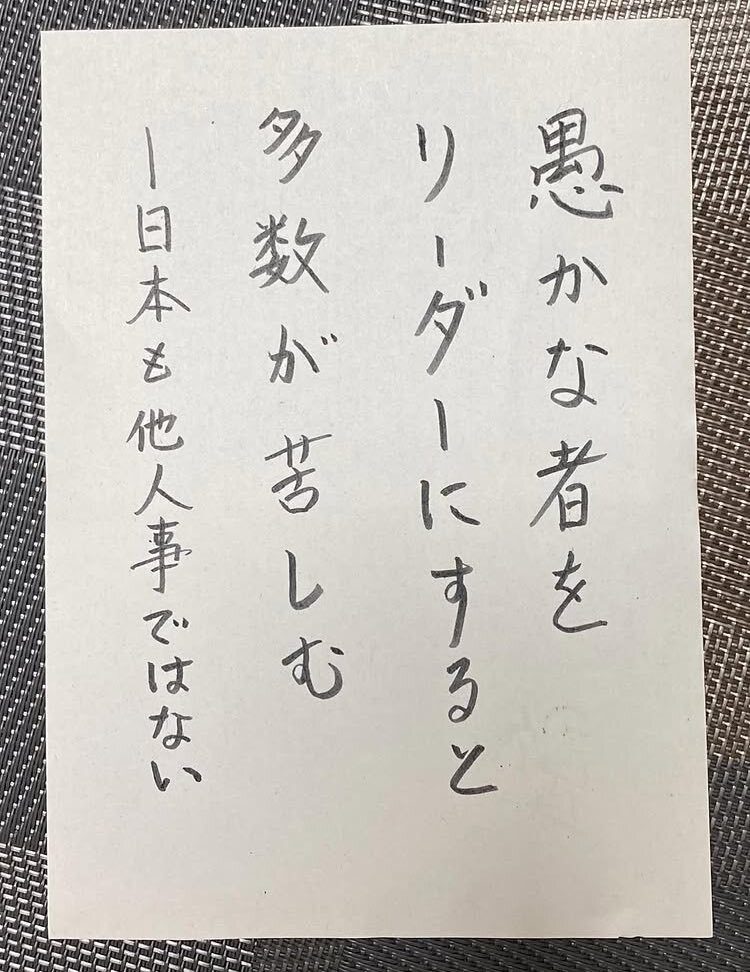 愚かな者を
リーダーにすると
多数が苦しむ
ー日本も他人事ではない